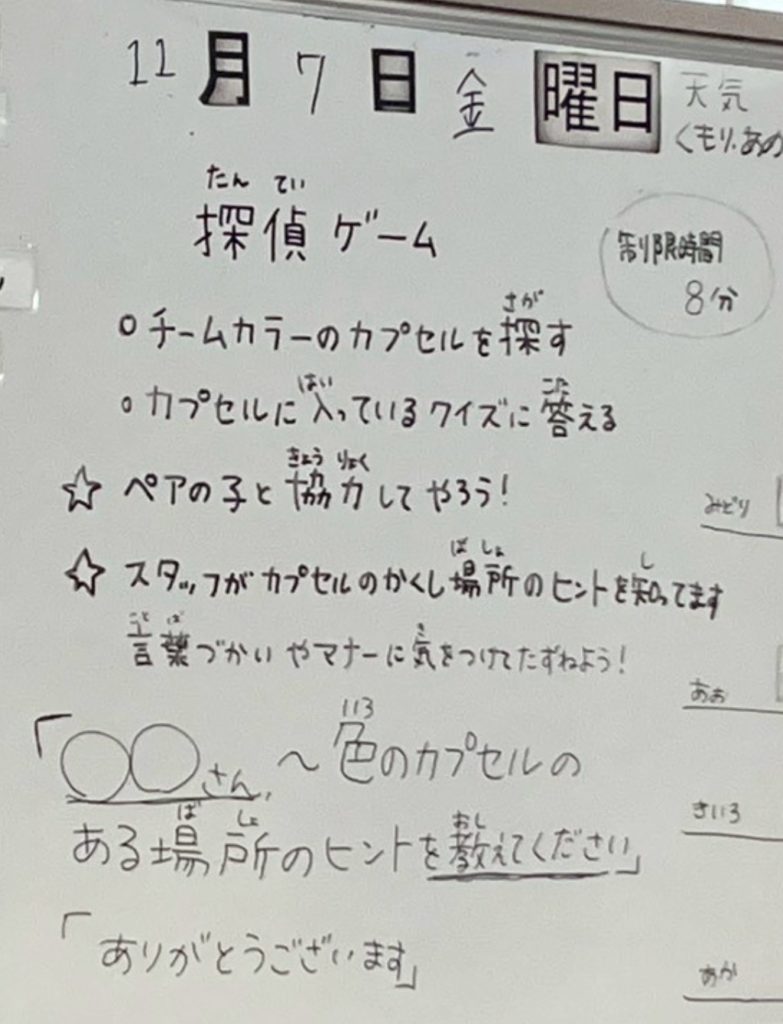 11月7日金曜日
天気
くもり、あめ
たんてい
探偵ゲーム
制限時間
8分
さが
○チームカラーのカプセルを探す
はい こた
○カプセルに入っているクイズに答える
きょうりょく
☆ペアの子と協力してやろう!
ばしょ し
☆スタッフがカプセルのかくし場所のヒントを知ってます
ことば き
言葉づかいやマナーに気をつけてたずねよう!
いろ
「○○さん、~色のカプセルの
ばしょ おし
ある場所のヒントを教えてください」
「ありがとうございます」
みどり
あお
きいろ
あか